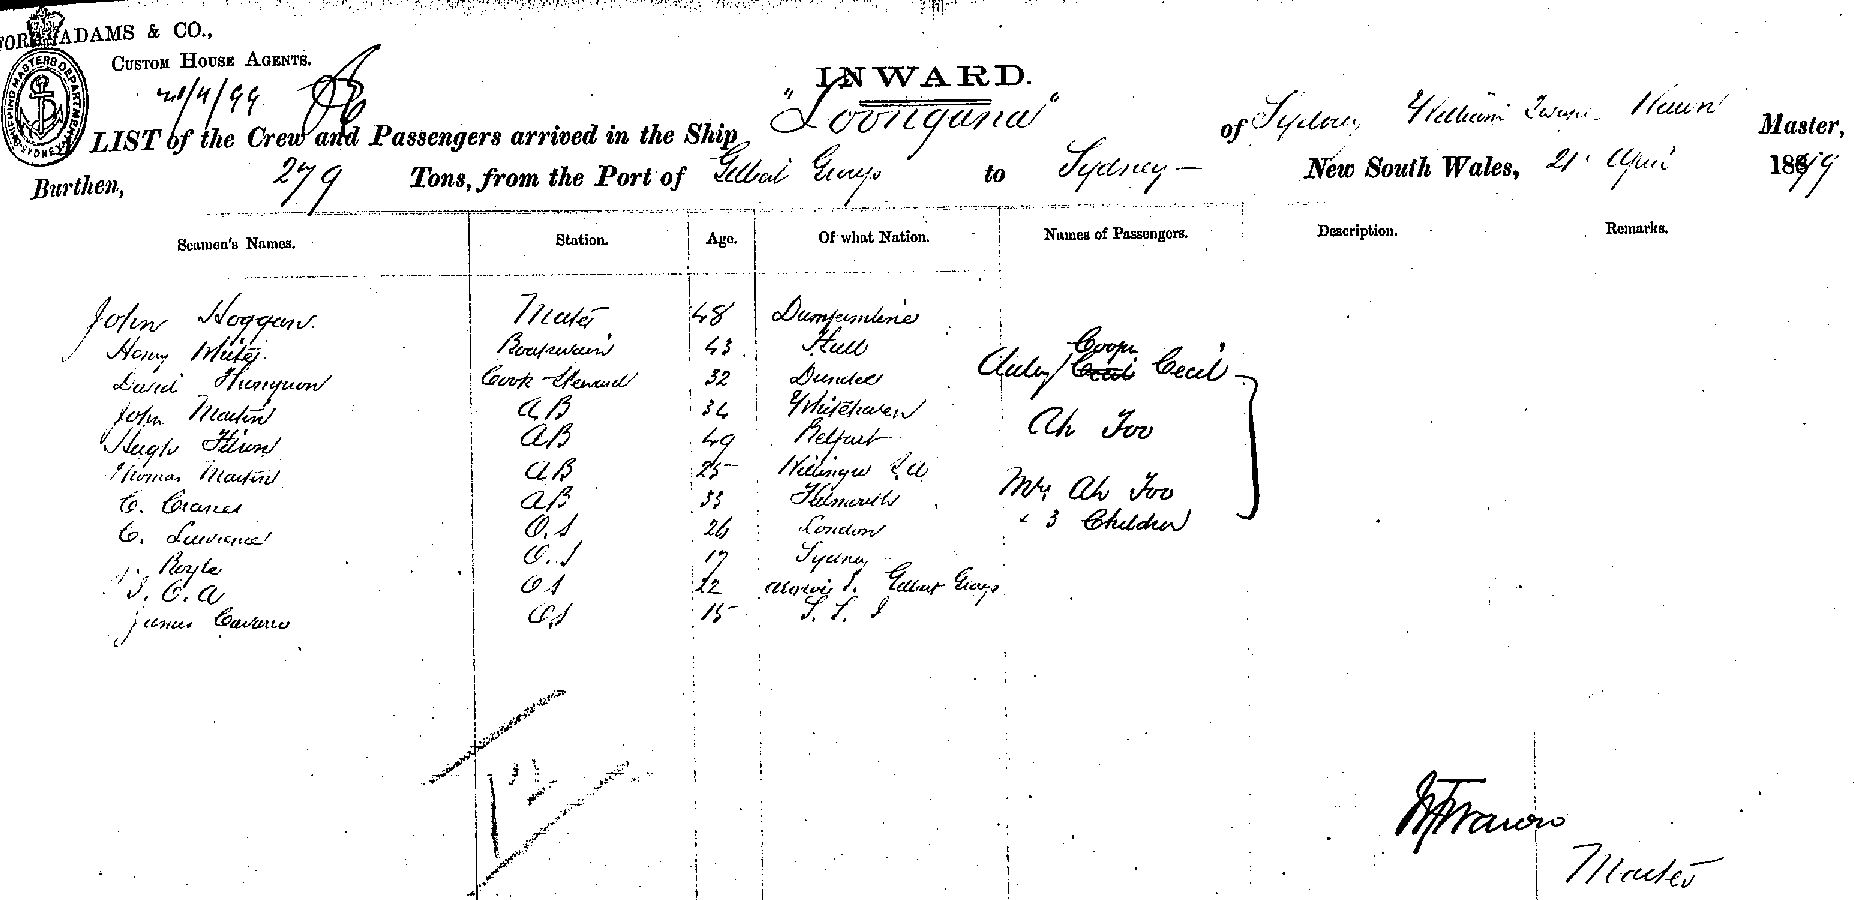 ADAMS & CO.,
CUSTOM HOUSE AGENTS.
SHIPPING MASTERS DEPARTMENT SYDNEY
21/4/99
INWARD.
LIST of the Crew and Passengers arrived in the Ship "Loongana" of Sydney William Master,
Burthen, 279 Tons, from the Port of Gilbert Group to Sydney — New South Wales, 21 April 1899
Seamen's Names. Station. Age. Of what Nation. Names of Passengers. Description. Remarks.
John Hoggan. Mate 48 Dunfermline
Henry White. Boatswain 43 Hull
Cooper
David Cook & Steward 32 Dundee Cecil Cecil
John Martin AB 34 Whitehaven
Hugh AB 49 Belfast Ah Foo
Thomas Martin AB 25
C. AB 33 Mrs Ah Foo
C. Lawrence O.S 26 London & 3 Children
J. Boyle O.S 17 Sydney
OS 22 Gilbert Group
James OS 15 S. S. I
12
Master